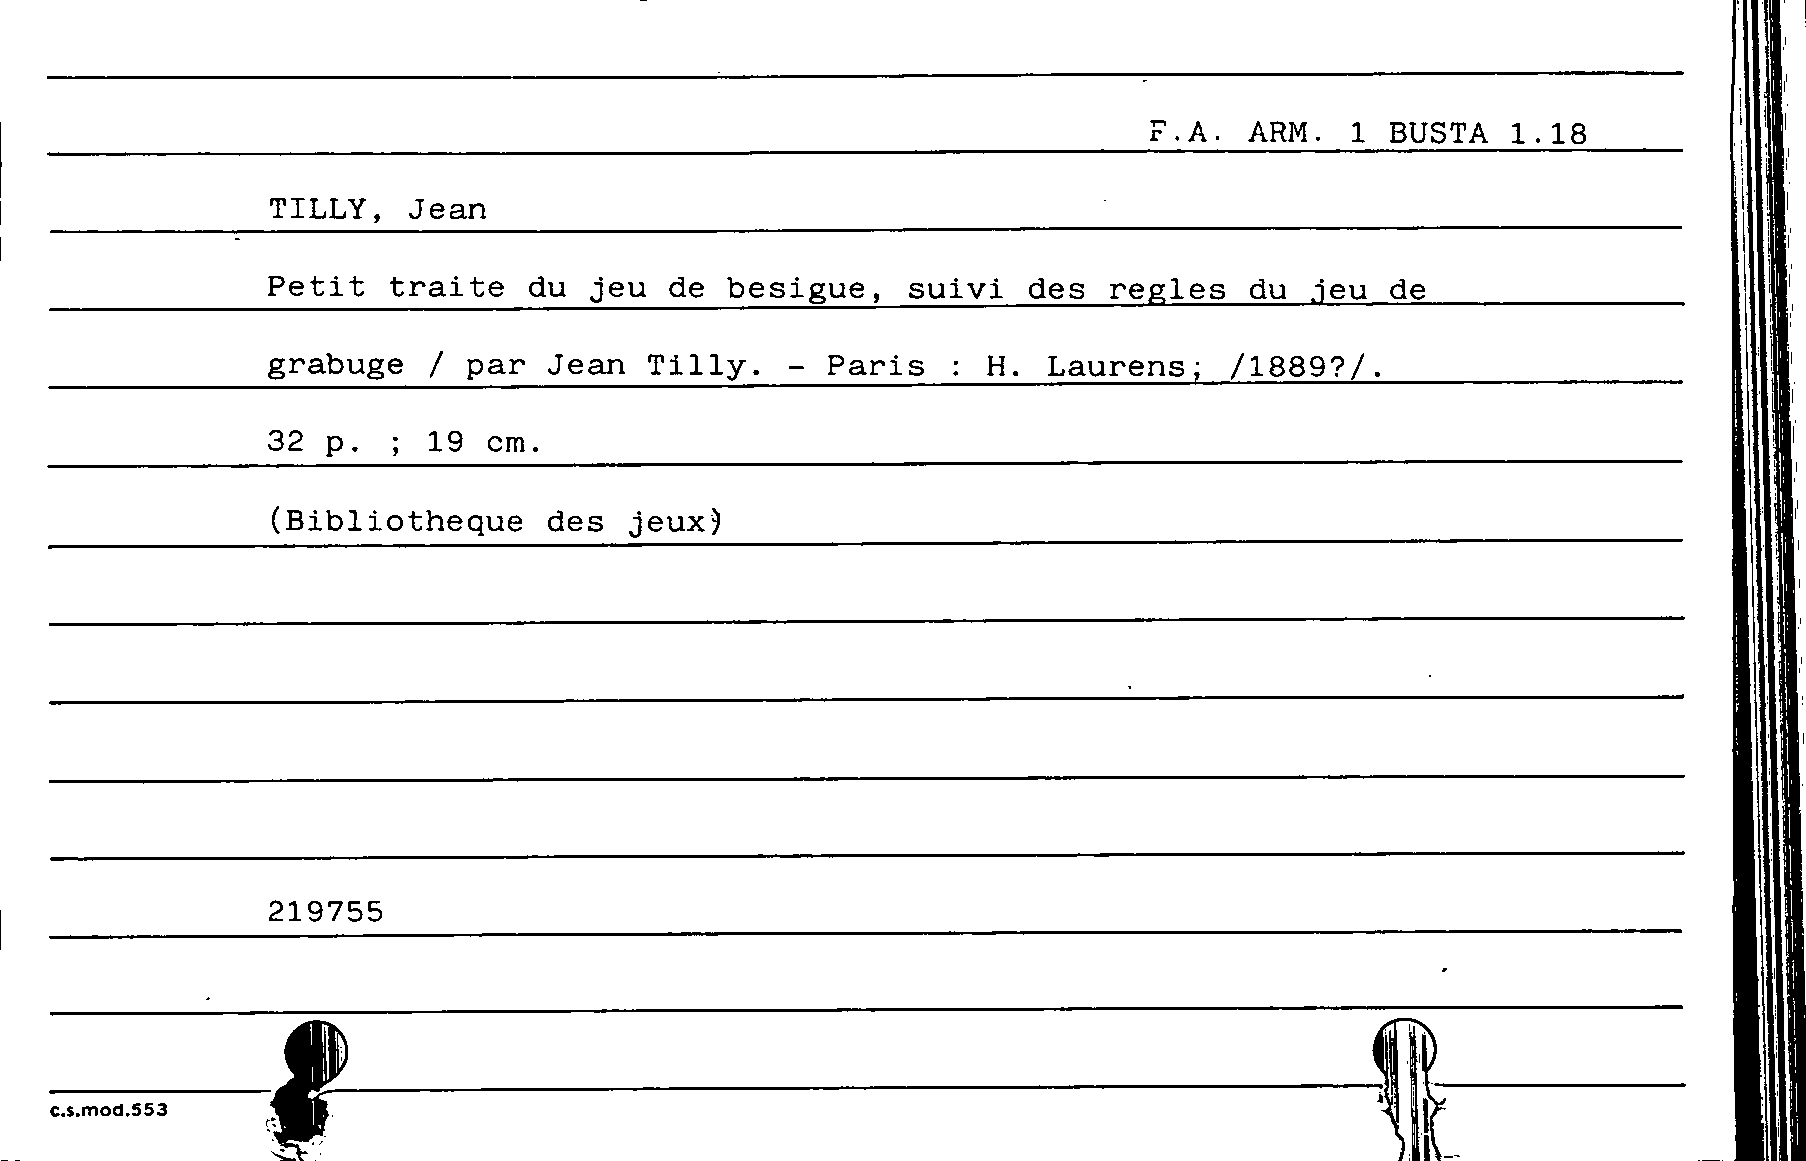 F.A. ARM. 1 BUSTA 1.18
TILLY, Jean
Petit traite du jeu de besigue, suivi des regles du jeu de
grabuge / par Jean Tilly. - Paris : H. Laurens; /1889?/.
32 p. ; 19 cm.
(Bibliotheque des jeux)
219755
c.s.mod.553